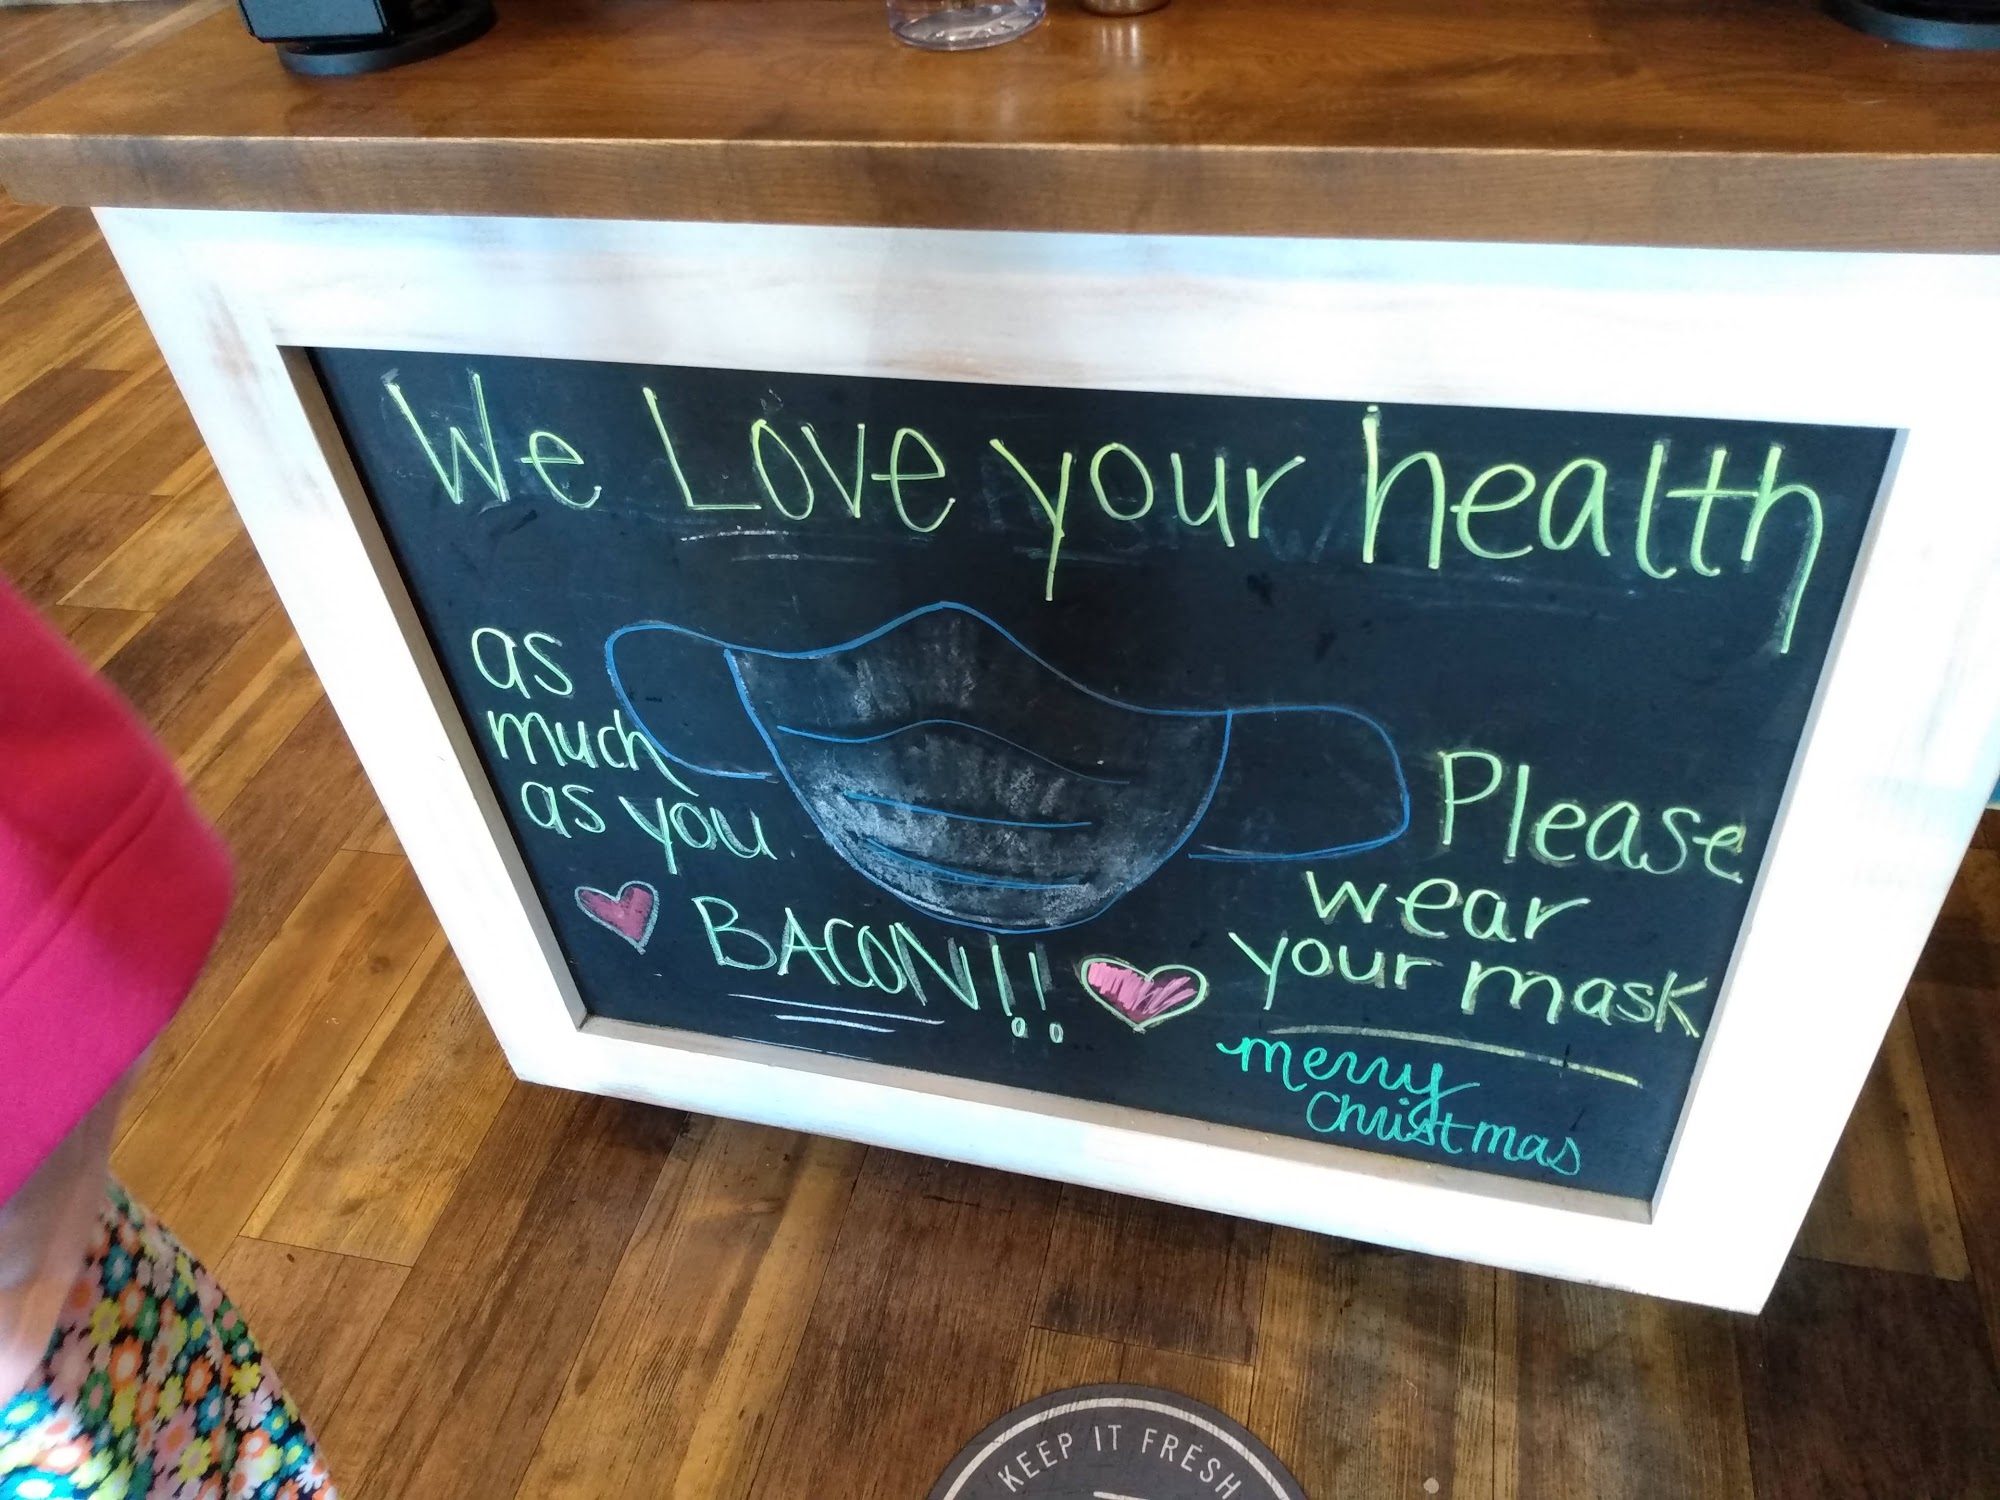 We Love your health
as
much
as you
BACON!!
Please
wear
your mask
merry
Christmas
KEEP IT FRESH